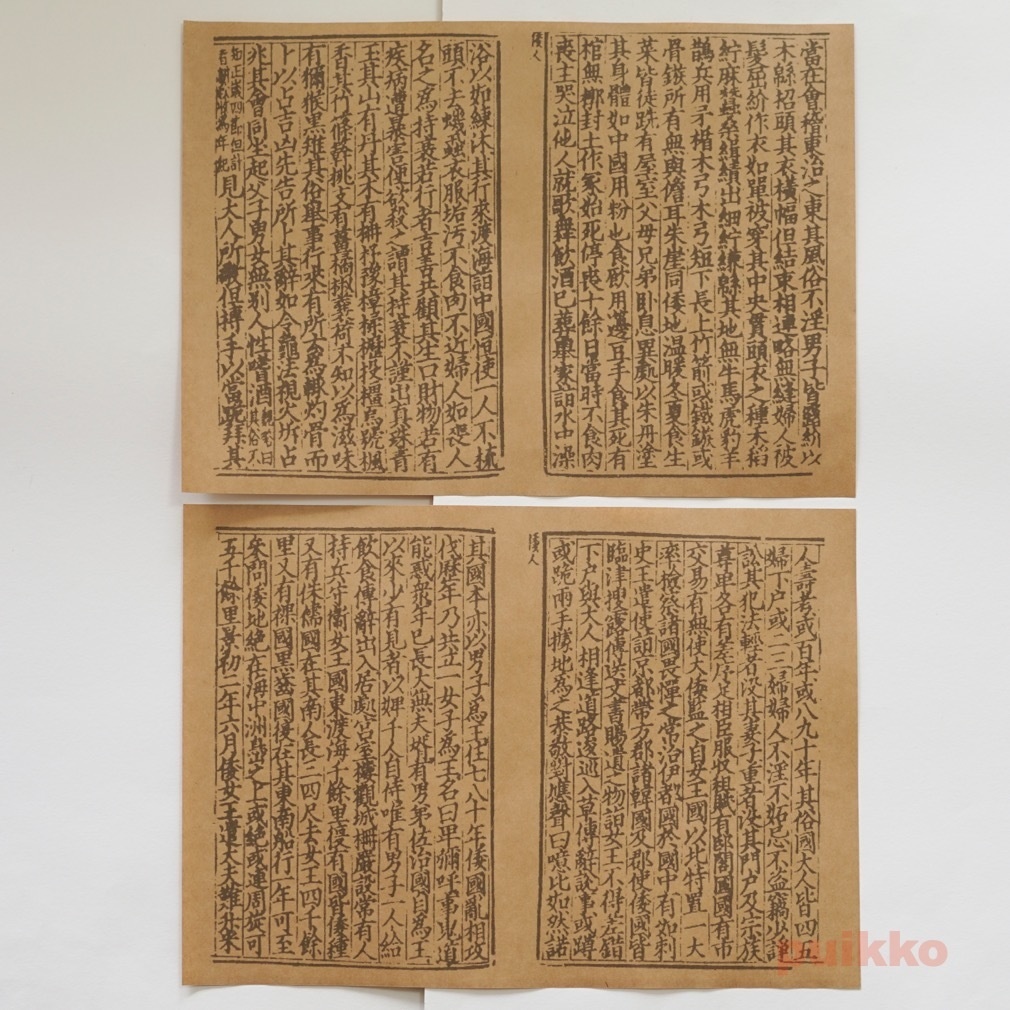 當在會稽東治之東其風俗不淫男子皆露紒以
木緜招頭其衣橫幅但結束相連略無縫婦人被
髮屈紒作衣如單被穿其中央貫頭衣之種禾稻
紵麻蠶桑緝績出細紵縑緜其地無牛馬虎豹羊
鵲兵用矛楯木弓木弓短下長上竹箭或鐵鏃或
骨鏃所有無與儋耳朱崖同倭地温暖冬夏食生
菜皆徒跣有屋室父母兄弟卧息異處以朱丹塗
其身體如中國用粉也食飲用籩豆手食其死有
棺無槨封土作冢始死停喪十餘日當時不食肉
喪主哭泣他人就歌舞飲酒已葬舉家詣水中澡
倭人
浴以如練沐其行來渡海詣中國恒使一人不梳
頭不去蟣蝨衣服垢汚不食肉不近婦人如喪人
名之爲持衰若行者吉善共顧其生口財物若有
疾病遭暴害便欲殺之謂其持衰不謹出真珠青
玉其山有丹其木有柟杼豫樟楺櫪投橿烏號楓
香其竹篠簳桃支有薑橘椒蘘荷不知以爲滋味
有獮猴黑雉其俗舉事行來有所云爲輒灼骨而
卜以占吉凶先告所卜其辭如令龜法視火坼占
兆其會同坐起父子男女無别人性嗜酒魏略曰其俗不
知正歲四節但計春耕秋收爲年紀見大人所敬但搏手以當跪拜其
人壽考或百年或八九十年其俗國大人皆四五
婦下户或二三婦婦人不淫不妒忌不盗竊少諍
訟其犯法輕者没其妻子重者没其門户及宗族
尊卑各有差序足相臣服收租賦有邸閣國國有市
交易有無使大倭監之自女王國以北特置一大
率檢察諸國畏憚之常治伊都國於國中有如刺
史王遣使詣京都帶方郡諸韓國及郡使倭國皆
臨津搜露傳送文書賜遺之物詣女王不得差錯
下户與大人相逢道路逡巡入草傳辭說事或蹲
或跪兩手據地爲之恭敬對應聲曰噫比如然諾
倭人
其國本亦以男子爲王住七八十年倭國亂相攻
伐歷年乃共立一女子爲王名曰卑彌呼事鬼道
能惑衆年已長大無夫壻有男弟佐治國自爲王
以來少有見者以婢千人自侍唯有男子一人給
飲食傳辭出入居處宫室樓觀城柵嚴設常有人
持兵守衞女王國東渡海千餘里復有國皆倭種
又有侏儒國在其南人長三四尺去女王四千餘
里又有裸國黑齒國復在其東南船行一年可至
參問倭地絶在海中洲㠀之上或絶或連周旋可
五千餘里景初二年六月倭女王遣大夫難升米
puikko